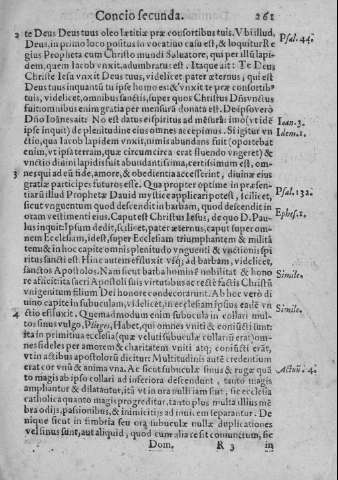 Concio secunda. 261
2 te Deus Deus tuus oleo lætitiæ præ consortibus tuis. Vbi illud,
Deus, in primo loco positus in vocatiuo casu est, & loquitur Re
gius Propheta cum Christo mundi Saluatore, qui per illũ lapi-
dem, quem Iacob vnxit, adumbratus est: Itaque ait: Te Deus
Christe Iesu vnxit Deus tuus, videlicet pater æternus, qui est
Deus tuus inquantũ tu ipse homo es: & vnxit te præ consortibꝰ
tuis, videlicet, omnibus sanctis, super quos Christus Dñs vnctus
fuit omnibus enim gratia per mensurã donata est. De ipso verò
Dño Ioãnes ait: No est datus ei spiritus ad mẽsurã: imo (vt idẽ
ipse inquit) de plenitudine eius omnes accepimus. Si igitur vn
ctio, qua Iacob lapidem vnxit, nimis abundans fuit (oportebat
enim, vt ipsa terram, quæ circum circa erat fluendo vngeret) &
vnctio diuini lapidis fuit abundantissima, certissimum est, om-
3 nes qui ad eũ fide, amore, & obedientia accesserint, diuinæ eius
gratiæ participes futuros esse. Qua propter optime in præsen-
tiarũ illud Prophetæ Dauid mysticè applicari potest, scilicet,
sicut vnguentum quod descendit in barbam, quod descendit in
oram vestimenti eius. Caput est Christus Iesus, de quo D. Pau-
lus inquit: Ipsum dedit, scilicet, pater æternus, caput super om-
nem Ecclesiam, id est, super Ecclesiam triumphantem & militã
tem: & in hoc capite omnis plenitudo vnguenti & vnctionis spi
ritus sancti est: Hinc autem effluxit vsq; ad barbam, videlicet,
sanctos Apostolos. Nam sicut barba hominẽ nobilitat & hono
re afficit ita sacri Apostoli suis virtutibus ac rectè factis Christũ
vnigenitum filium Dei honore condecorarunt. Ab hoc verò di
uino capite in subuculam, videlicet, in ecclesiam ipsius eadẽ vn
4 ctio effluxit. Quemadmodum enim subucula in collari mul-
tos sinus vulgo, Pliegos, Habet, qui omnes vniti & coniũcti sunt:
ita in primitiua ecclesia (quæ veluti subuculæ collariũ erat) om-
nes fideles per amorem & charitatem vniti atq; coniũcti erãt,
vt in actibus apostolorũ dicitur: Multitudinis autẽ credentium
erat cor vnũ & anima vna. Ac sicut subuculæ sinus & rugæ quã
to magis ab ipso collari ad inferiora descendunt, tanto magis
ampliantur & dilatantur, itã vt in ora nulli iam sint, sic ecclesia
catholica quanto magis progreditur, tanto plus multa illius mẽ
bra odijs, passionibus, & inimicitijs ad inuicem separantur. De
nique sicut in fimbria seu ora subuculæ nullæ duplicationes
vel sinus sunt, aut aliquid, quod cum alia re sit coniunctum, sic
Dom. R 3 in
Psal. 44.
Ioan. 3.
Idem. 1.
Psal. 132.
Ephes. 1.
Simile.
Simile.
Actuũ. 4.